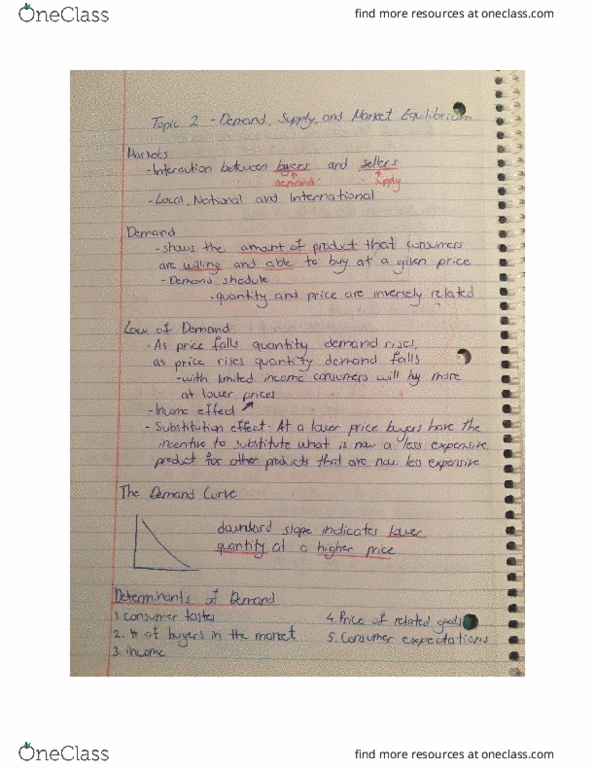 OneClass
find more resources at oneclass.com
Topic 2 - Demand, Supply, and Market Equilibrium
Markets
-Interaction between buyers and sellers
demand supply
-Local, National and International
Demand
-shows the amount of product that consumers
are willing and able to buy at a given price
-Demand shedule
-quantity and price are inversely related
Law of Demand
-As price falls quantity demand rises,
as price rises quantity demand falls
-with limited income consumers will by more
at lower prices
-Income effect
-Substitution effect. At a lower price buyers have the
incentive to substitute what is now a less expensive
product for other products that are now less expensive
The Demand Curve
downward slope indicates lower
quantity at a higher price
Determinants of Demand
1. Consumer tastes
2. # of buyers in the market
3. income
4. Price of related goods
5. Consumer expectations
OneClass
find more resources at oneclass.com